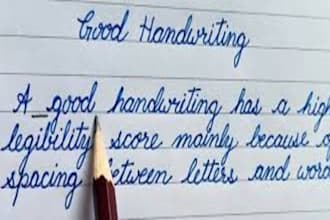 Good Handwriting
A good handwriting has a hig
legibility score mainly because o
spacing between letters and word